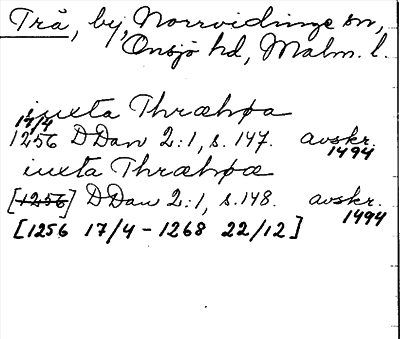 Trå, by, Norrvidinge sn,
Onsjö hd, Malm. l.
iuxta Thræhøa
17/4
1256 DDan 2:1, s. 147. avskr.
1494
iuxta Thræhøæ
[1256] DDan 2:1, s. 148. avskr.
1494
[1256 17/4 - 1268 22/12]